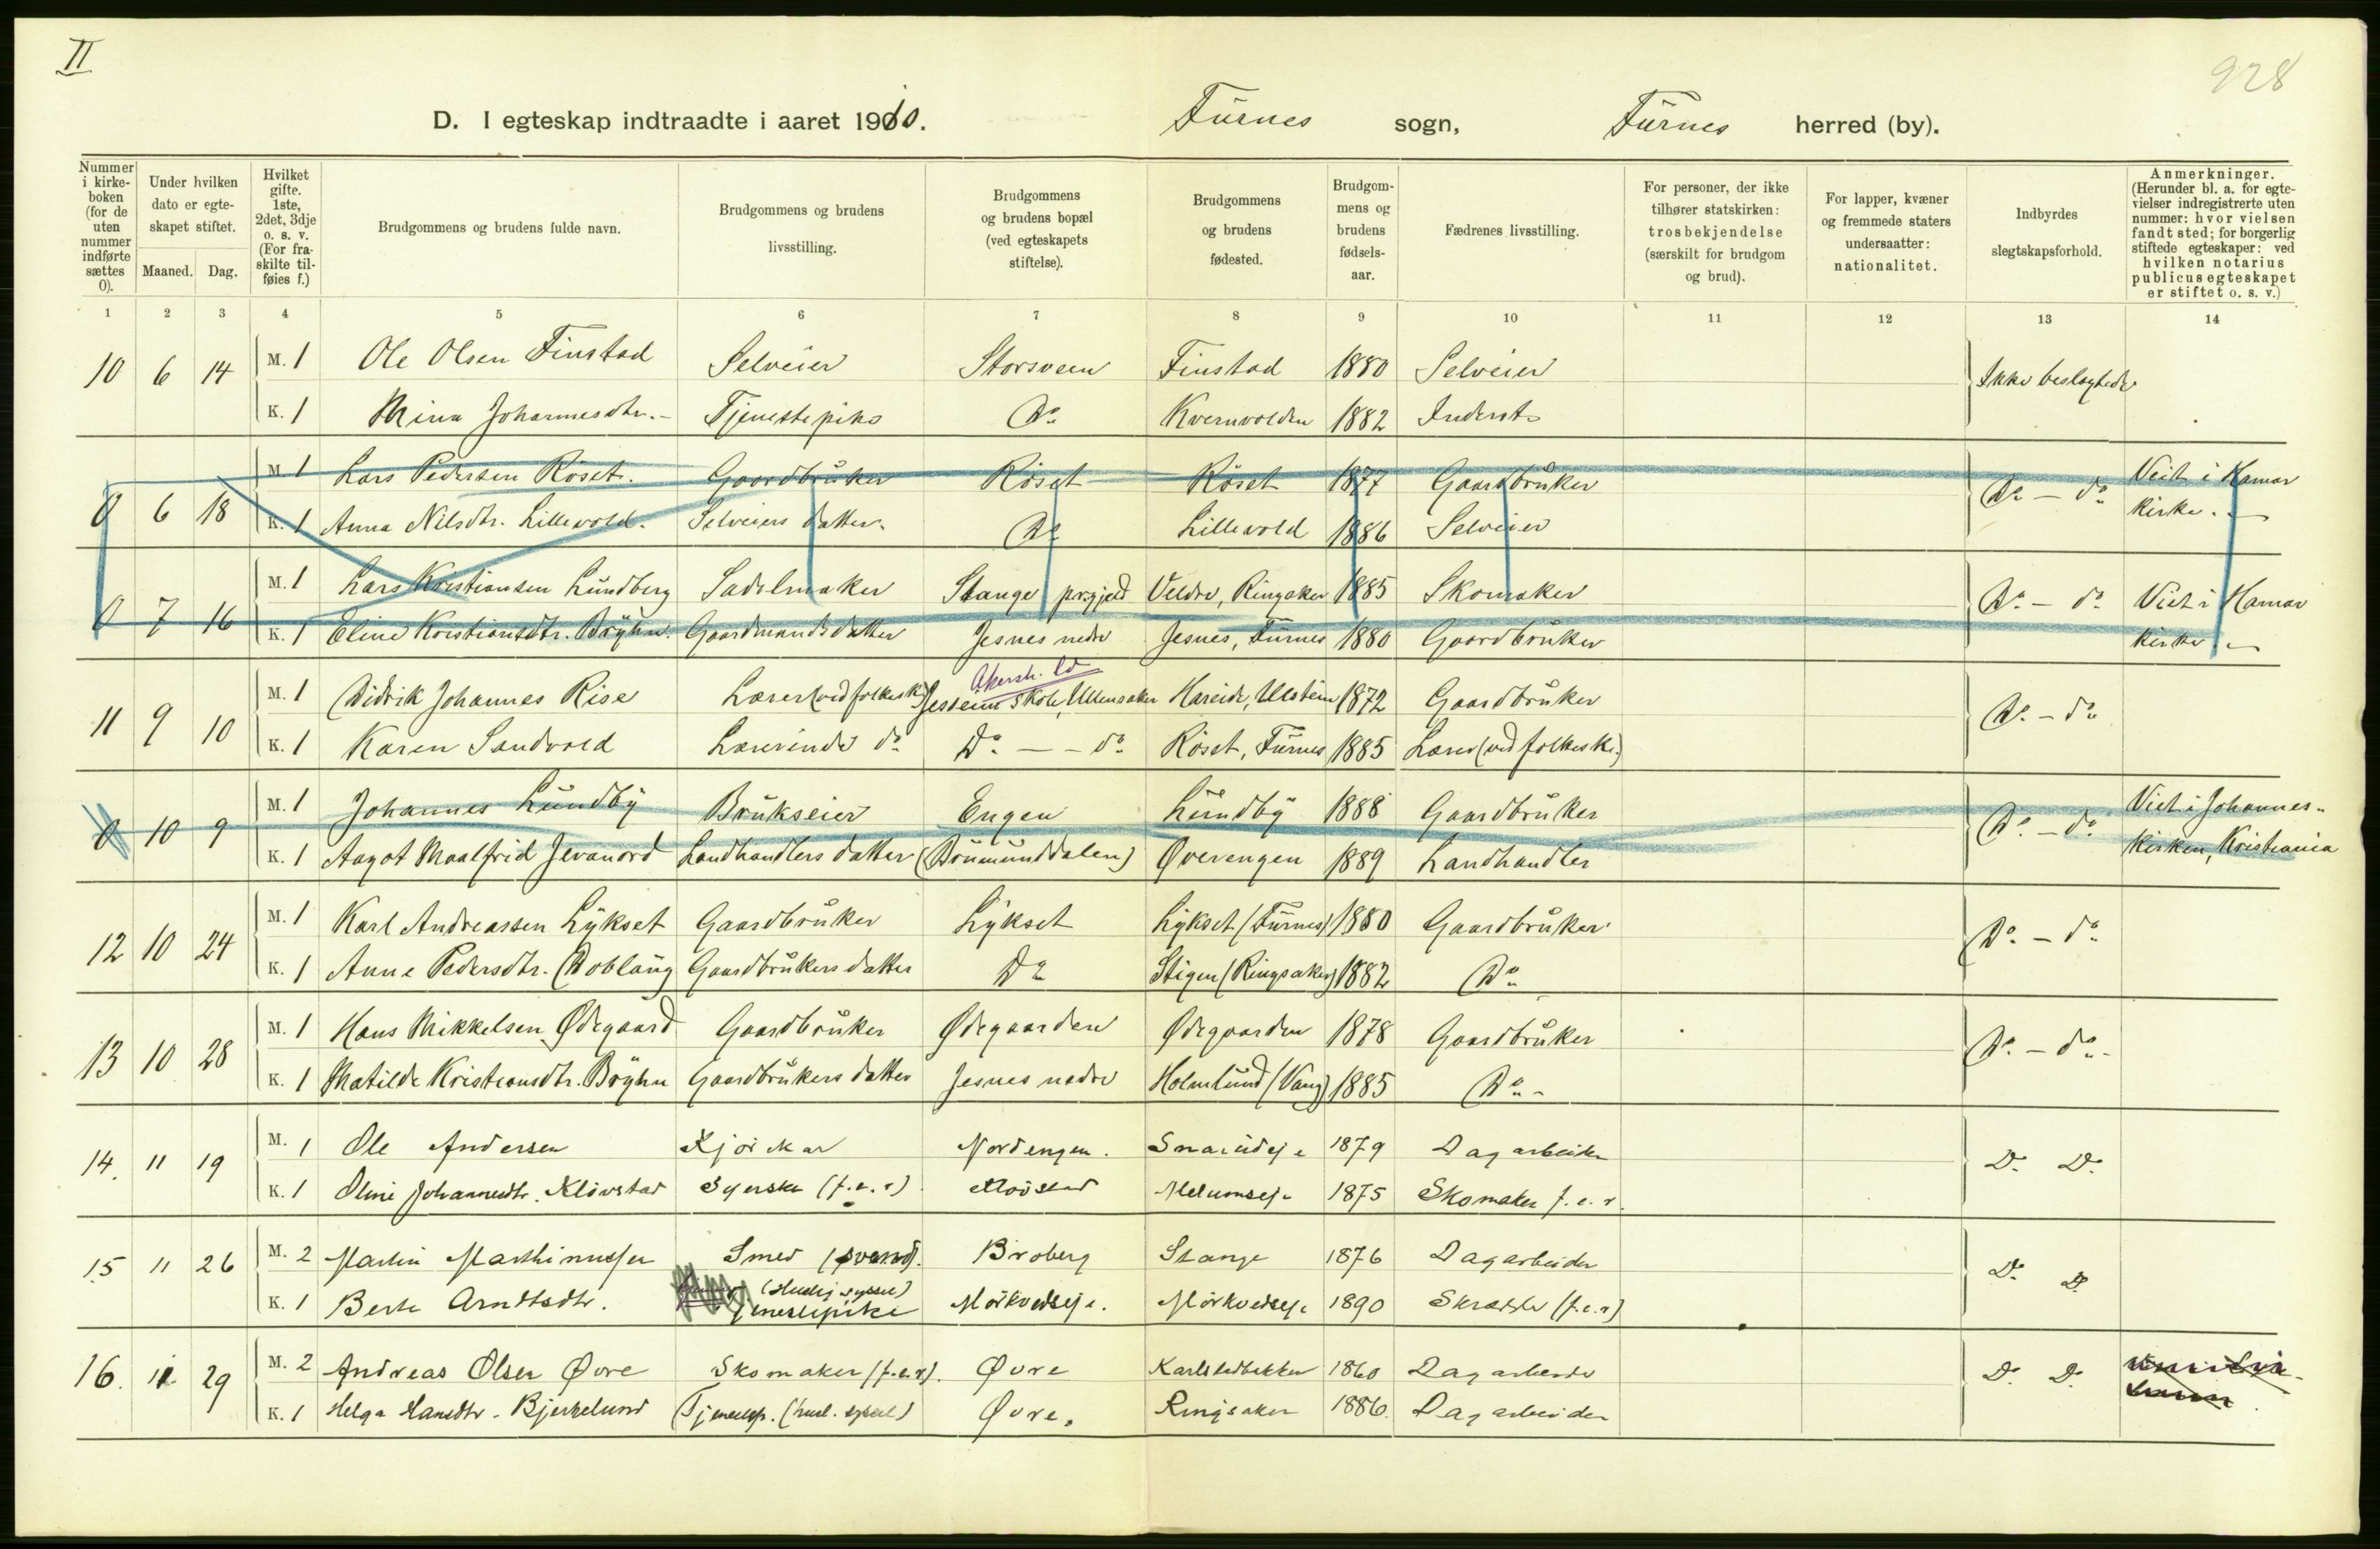 II
928
D. I egteskap indtraadte i aaret 1910. Fürnes sogn, Fürnes herred (by).
Nummer i kirke-boken (for de uten nummer indførte sættes 0).
Under hvilken dato er egte-skapet stiftet.
Maaned. Dag.
Hvilket gifte. 1ste, 2det, 3dje o. s. v. (For fra-skilte til-føies f.)
Brudgommens og brudens fulde navn.
Brudgommens og brudens livsstilling.
Brudgommens og brudens bopæl (ved egteskapets stiftelse).
Brudgommens og brudens fødested.
Brudgom-mens og brudens fødsels-aar.
Fædrenes livsstilling.
For personer, der ikke tilhører statskirken: trosbekjendelse (særskilt for brudgom og brud).
For lapper, kvæner og fremmede staters undersaatter: nationalitet.
Indbyrdes slegtskapsforhold.
Anmerkninger. (Herunder bl. a. for egte-vielser indregistrerte uten nummer: hvor vielsen fandt sted; for borgerlig stiftede egteskaper: ved hvilken notarius publicus egteskapet er stiftet o. s. v.)
1 2 3 4 5 6 7 8 9 10 11 12 13 14
10 6 14 M. 1 Ole Olsen Finstad Selveier Storsveen Finstad 1880 Selveier Ikke beslegtede
K. 1 Mina Johannesdtr. Tjenestepike Do Kvernvolden 1882 Inderst
0 6 18 M. 1 Lars Pedersen Röset. Gaardbrüker Röset Röset 1877 Gaardbrüker Do - do Viet i Hamar
K. 1 Anna Nilsdtr. Lillevold. Selveiers datter. Do Lillevold 1886 Selveier kirke.
0 7 16 M. 1 Lars Kristiansen Lundberg Sadelmaker Stange prgjeld Veldre, Ringsaker 1885 Skomaker Do - do Viet i Hamar
K. 1 Eline Kristiansdtr. Bryhn. Gaardmandsdatter Jesnes nedre Jesnes, Fürnes 1880 Gaardbrüker kirke.
Akersh. ld
11 9 10 M. 1 Didrik Johannes Rise Lærer (ved folkesk.) Jesseim skole, Ullensaker Hareide, Ulstein 1872 Gaardbrüker Do - do
K. 1 Karen Sandvold Lærerinde do Do - - do Röset, Fürnes 1885 Lærer (ved folkesk.)
0 10 9 M. 1 Johannes Lundby Brukseier Engen Lündby 1888 Gaardbrüker Do - do Viet i Johannes-
K. 1 Aagot Maalfrid Jevanord Landhandlers datter (Brumunddalen) Øverengen 1889 Landhandler kirken, Kristiania
12 10 24 M. 1 Karl Andreassen Lykset Gaardbrüker Lykset Lykset (Fürnes) 1880 Gaardbrüker Do - do
K. 1 Anne Pedersdtr. Dobloug Gaardbrükers datter Do Stigen (Ringsaker) 1882 Do
13 10 28 M. 1 Hans Mikkelsen Ødegaard Gaardbrüker Ødegaarden Ødegaarden 1878 Gaardbrüker Do - do
K. 1 Matilde Kristiansdtr. Bryhn Gaardbrükers datter Jesnes nedre Holmlund (Vang) 1885 Do
14. 11 19 M. 1 Ole Andersen Nordengen. 1879 Dagarbeider D. D.
K. 1 Oline Johannesdtr. Klövstad Syerske (f.e.r) Klövstad Melumseje 1875 Skomaker f.e.r.
15 11 26 M. 2 Martin Marthinussen Smed (svend). Broberg Stange 1876 Dagarbeider D. D.
K. 1 Berte Arndtsdtr. (Huslig syssel) Tjenestepike Mörkvedseje. Mörkvedseje 1890 Skrædder (f.e.r)
16. 11 29 M. 2 Andreas Olsen Øvre Skomaker (f.e.r). Øvre Karlstadbakken 1860 Dagarbeider D. D.
K. 1 Helga Hansdtr. Bjerkelund Tjenestep. (husl. syssel) Øvre. Ringsaker 1886. Dagarbeider